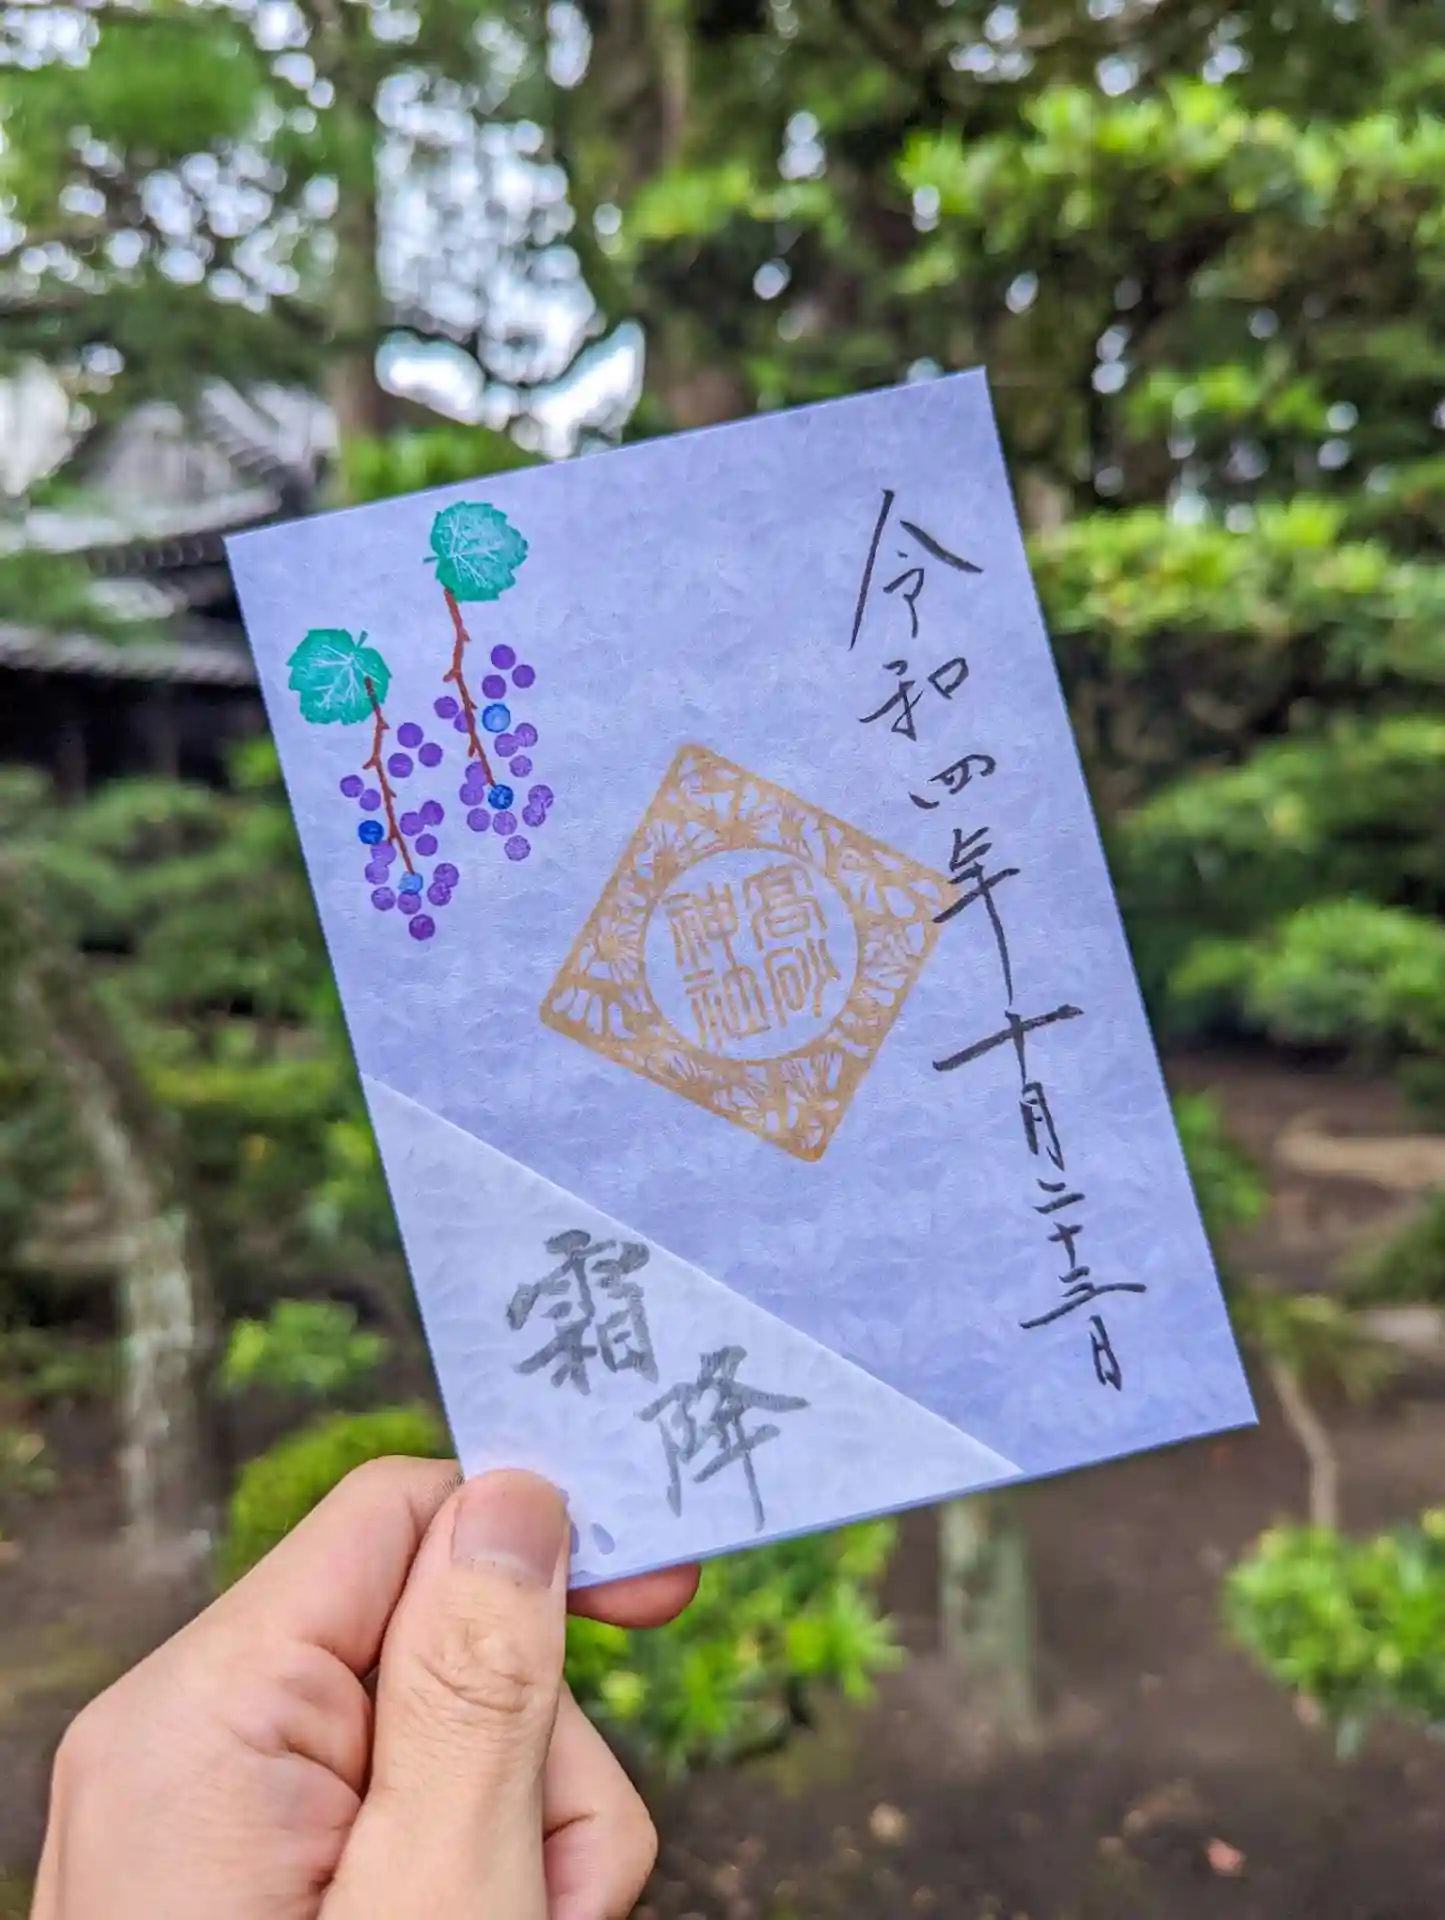 令和四年十月二十三日
高砂
神社
霜降